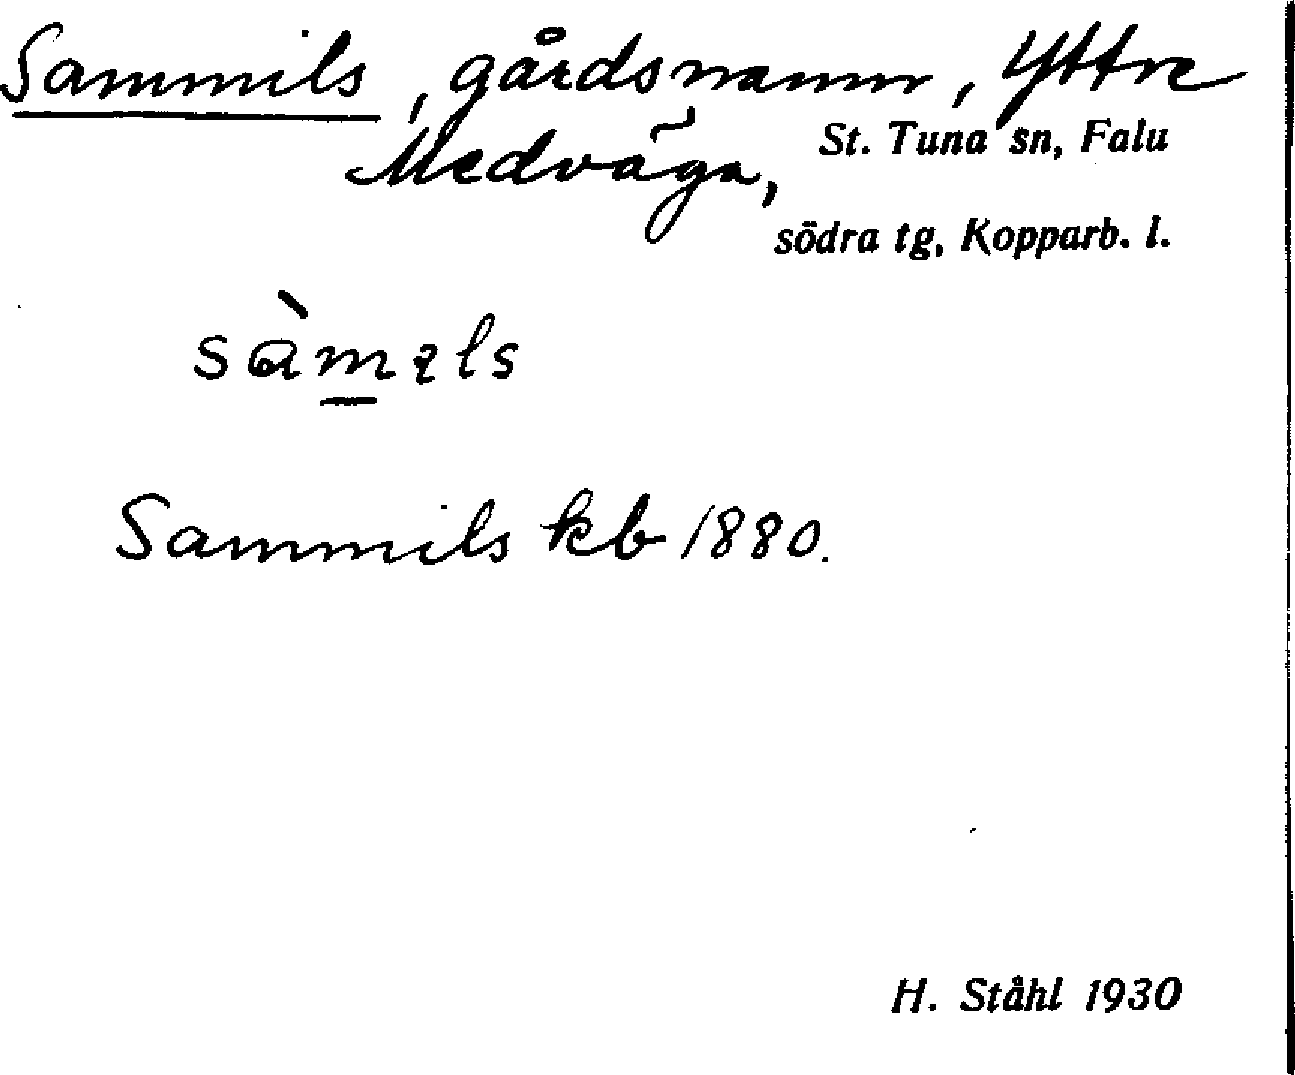 Sammils, gårdsnamn, Yttre
Medväga, St. Tuna sn, Falu
södra tg, Kopparb. l.
Sammils kb 1880.
H. Ståhl 1930